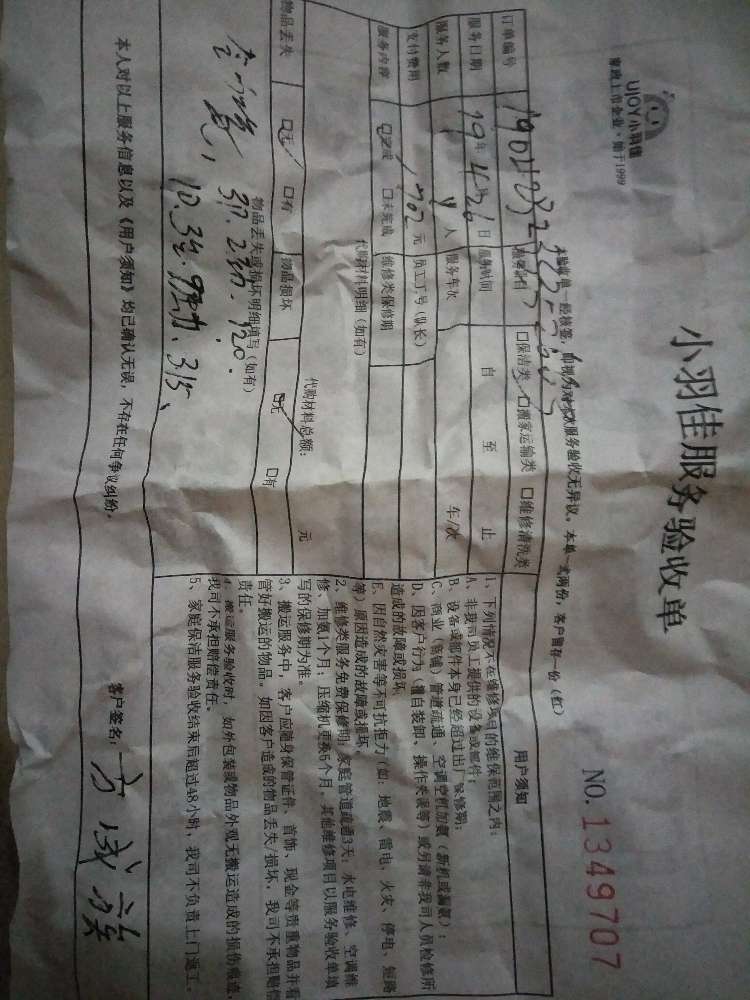 UJOY小羽佳
家政上市企业·始于1999
小羽佳服务验收单
NO.1349707
本验收单一经核签,即视为对本次服务验收无异议。本单一式两份,客户留存一份(红)
订单编号
服务日期 19年4月26日 服务时间 自 至 止
□保洁类 □搬家运输类 □维修清洗类
服务人数 4人 服务车次 车/次
支付费用 1702元 员工工号(队长)
服务内容 □完成 □未完成 维修类保修期
代购材料明细(如有)
代购材料总额: 元
物品丢失 □无 □有 物品损坏 □无 □有
物品丢失或损坏明细填写(如有)
本人对以上服务信息以及《用户须知》均已确认无误,不存在任何争议纠纷。
用户须知
1、下列情况不在维修项目的维保范围之内:
A、非我司员工提供的设备或部件;
B、设备或部件本身已经超过出厂保修期;
C、商业(店铺)管道疏通、空调空机加氨(新机或漏氨);
D、因客户行为(擅自装卸、操作失误等)或另请非我司人员检修所
造成的故障或损坏
E、因自然灾害等不可抗拒力(如:地震、雷电、火灾、停电、短路
等)原因造成的故障或损坏
2、维修类服务免费保修期:家庭管道疏通3天;水电维修、空调维
修、加氨1个月;压缩机更换6个月,其他维修项目以服务验收单填
写的保修期为准。
3、搬运服务中,客户应随身保管证件、首饰、现金等贵重物品并看
管好搬运的物品。如因客户造成的物品丢失/损坏,我司不承担赔偿
责任。
4、搬运服务验收时,如外包装或物品外观无搬运造成的损伤痕迹,
我司不承担赔偿责任。
5、家庭保洁服务验收结束后超过48小时,我司不负责上门返工。
客户签名: